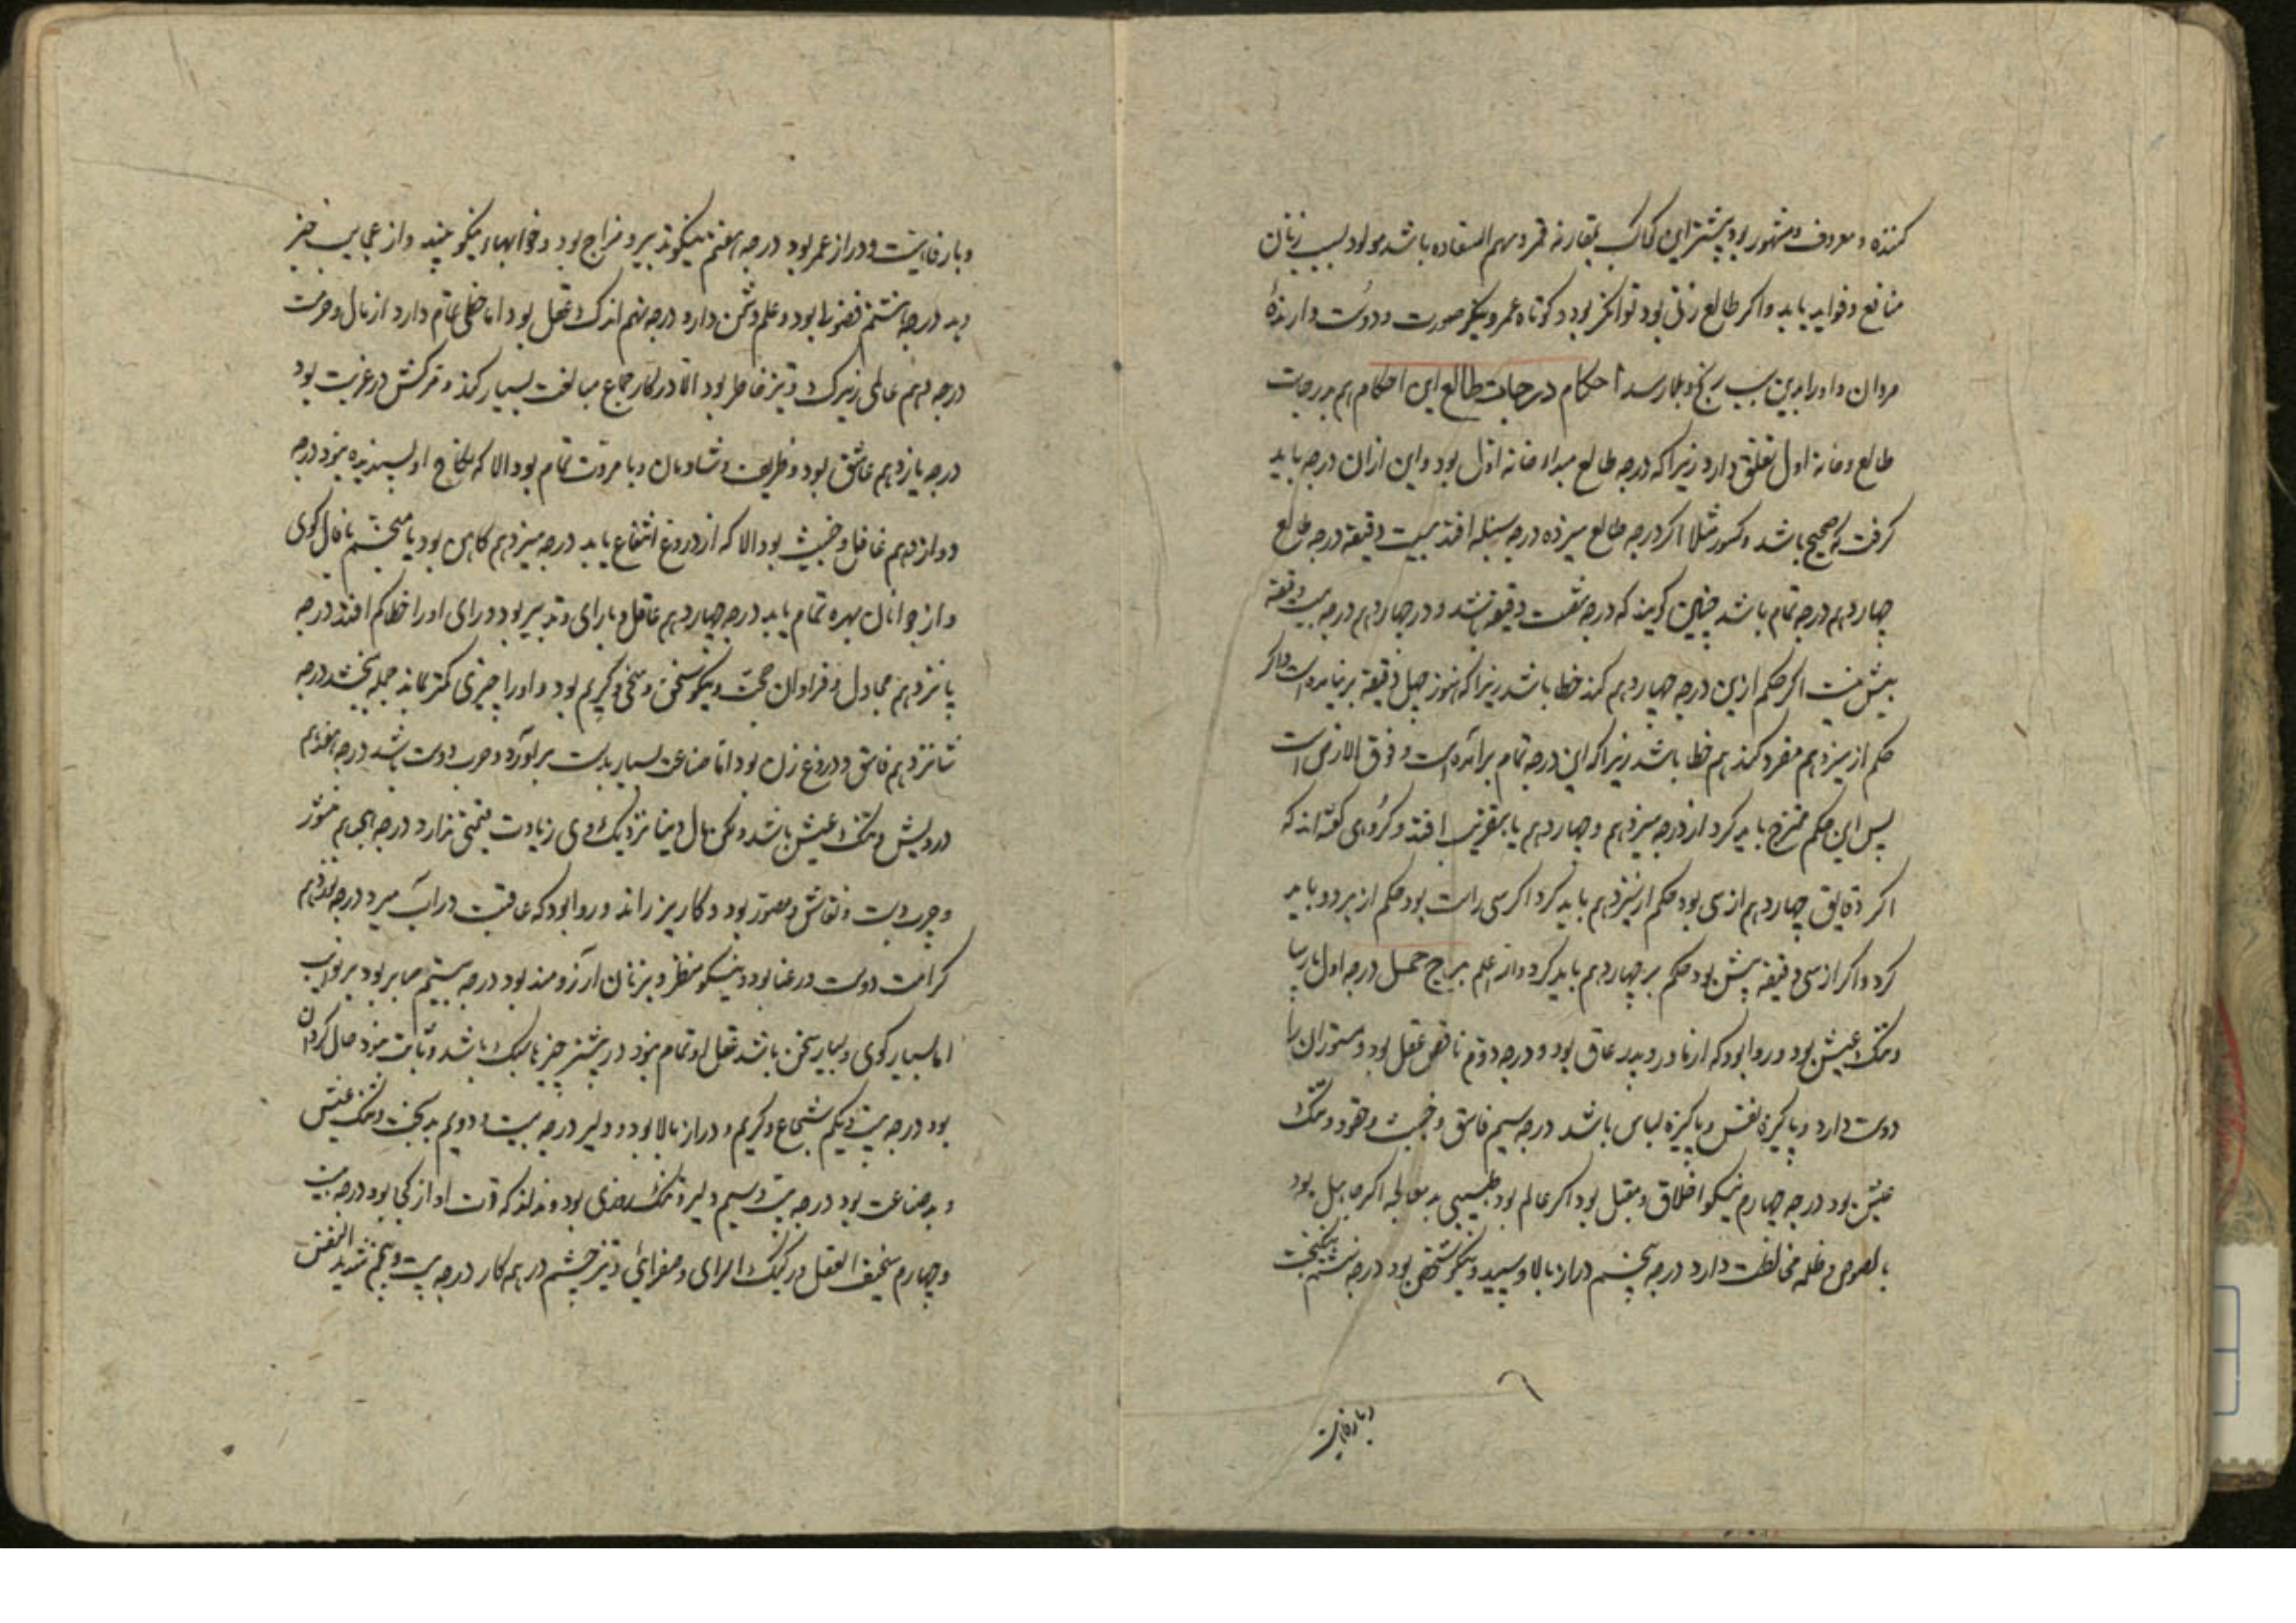 کننده و معروف و مشهور بود پیشتر این کواکب بمقارنه قمر و سهم السعاده باشد مولود بسبب زنان
منافع و فواید یابد و اکر طالع زنی بود توانکر بود و کوتاه عمر و نیکو صورت و دوست دارندهٔ
مردان و او را بدین سبب رنج و بلا رسد احکام درجات طالع این احکام هم بدرجات
طالع و خانه اول تعلق دارد زیرا که درجه طالع مبداء خانه اول بود و این از ان درجه باید
کرفت که صحیح باشد و کسور مثلا اکر درجه طالع سیزده درجه سنبله افتد بیست دقیقه درجه طالع
چهاردهم درجه تمام باشد چنین کویند که درجه شصت دقیقه باشد و در چهاردهم درجه بیست دقیقه
بیش نیست اکر حکم ازین درجه چهاردهم کند خطا باشد زیرا که هنوز چهل دقیقه بر نیامده است و اکر
حکم از سیزدهم مفرد کند هم خطا باشد زیرا که این درجه تمام بر آمده است و فوق الارض است
پس این حکم ممتزج باید کرد از درجه سیزدهم و چهاردهم یا بتقریب افتد و کروهی کفته اند که
اکر دقایق چهاردهم از سی بود حکم از سیزدهم باید کرد اکر سی راست بود حکم از هر دو باید
کرد و اکر از سی دقیقه بیش بود حکم بر چهاردهم باید کرد والله اعلم برج حمل درجه اول پارسا
و تنک عیش بود و روا بود که از مادر و پدر عاق بود و درجه دوم ناقص عقل بود و ستوران را
دوست دارد و پاکیزه نفس و پاکیزه لباس باشد درجه سیم فاسق و خبیث و حقود و تنک
عیش بود درجه چهارم نیکو اخلاق و مقبل بود اکر عالم بود طبیبی بد معالجه اکر جاهل بود
با لصوص و ظلمه مخالطت دارد درجه پنجم دراز بالا و سپید و نیکو شخص بود درجه ششم نیکبخت
و بارفاهیت
و بارفاهیت و دراز عمر بود درجه هفتم نیکو تدبیر و مزاج بود و خوابهاء نیکو بیند و از عجایب خبر
دهد درجه هشتم فضولی بود و علم و شمن دارد درجه نهم اندک عقل بود اما حظی تمام دارد از مال و حرمت
درجه دهم عالمی زیرک و تیز خاطر بود الا در کار جماع مبالغت بسیار کند و مرکش در غربت بود
درجه یازدهم عاشق بود و ظریف و شادمان و با مروت تمام بود الا که نکاح او پسندیده نبود درجه
دوازدهم غافل و خبیث بود الا که از دروغ انتفاع یابد درجه سیزدهم کاهن بود یا منجم یا فال کوی
و از جوانان بهره تمام یابد درجه چهاردهم عاقل و با رای و تدبیر بود و رای او را خطا کم افتد درجه
پانزدهم مجادل و فراوان حجت و نیکو سخن و سخی و کریم بود و او را چیزی کمتر بماند جمله ببخشد درجه
شانزدهم فاسق و دروغ زن بود اما صناعت بسیار بدست بر آورد و حرب دوست باشد درجه هفدهم
درویش و تنک عیش باشد و لکن مال دنیا نزدیک وی زیادت قیمتی ندارد درجه هجدهم
و چرب دست و نقاش و مصور بود و کاریز راند و روا بود که عاقبت در آب میرد درجه نوزدهم
کرامت دوست و رعنا بود و نیکو منظر و بزنان آرزومند بود درجه بیستم صابر بود بر نوایب
اما بسیار کوی و بسیار سخن باشد عقل او تمام نبود در بیشتر چیزها سبک باشد و ثابت نبود حال کردان
بود درجه بیست و یکم شجاع و کریم و دراز بالا بود و دلیر درجه بیست و دویم بدبخت و تنک عیش
و بد صناعت بود درجه بیست و سیم دلیر و تنک روزی بود و نداند که قوت او از کجا بود درجه بیست
و چهارم سخیف العقل و رکیک الرای و صفرائی و تیز چشم در هر کار درجه بیست و پنجم شدید النفس